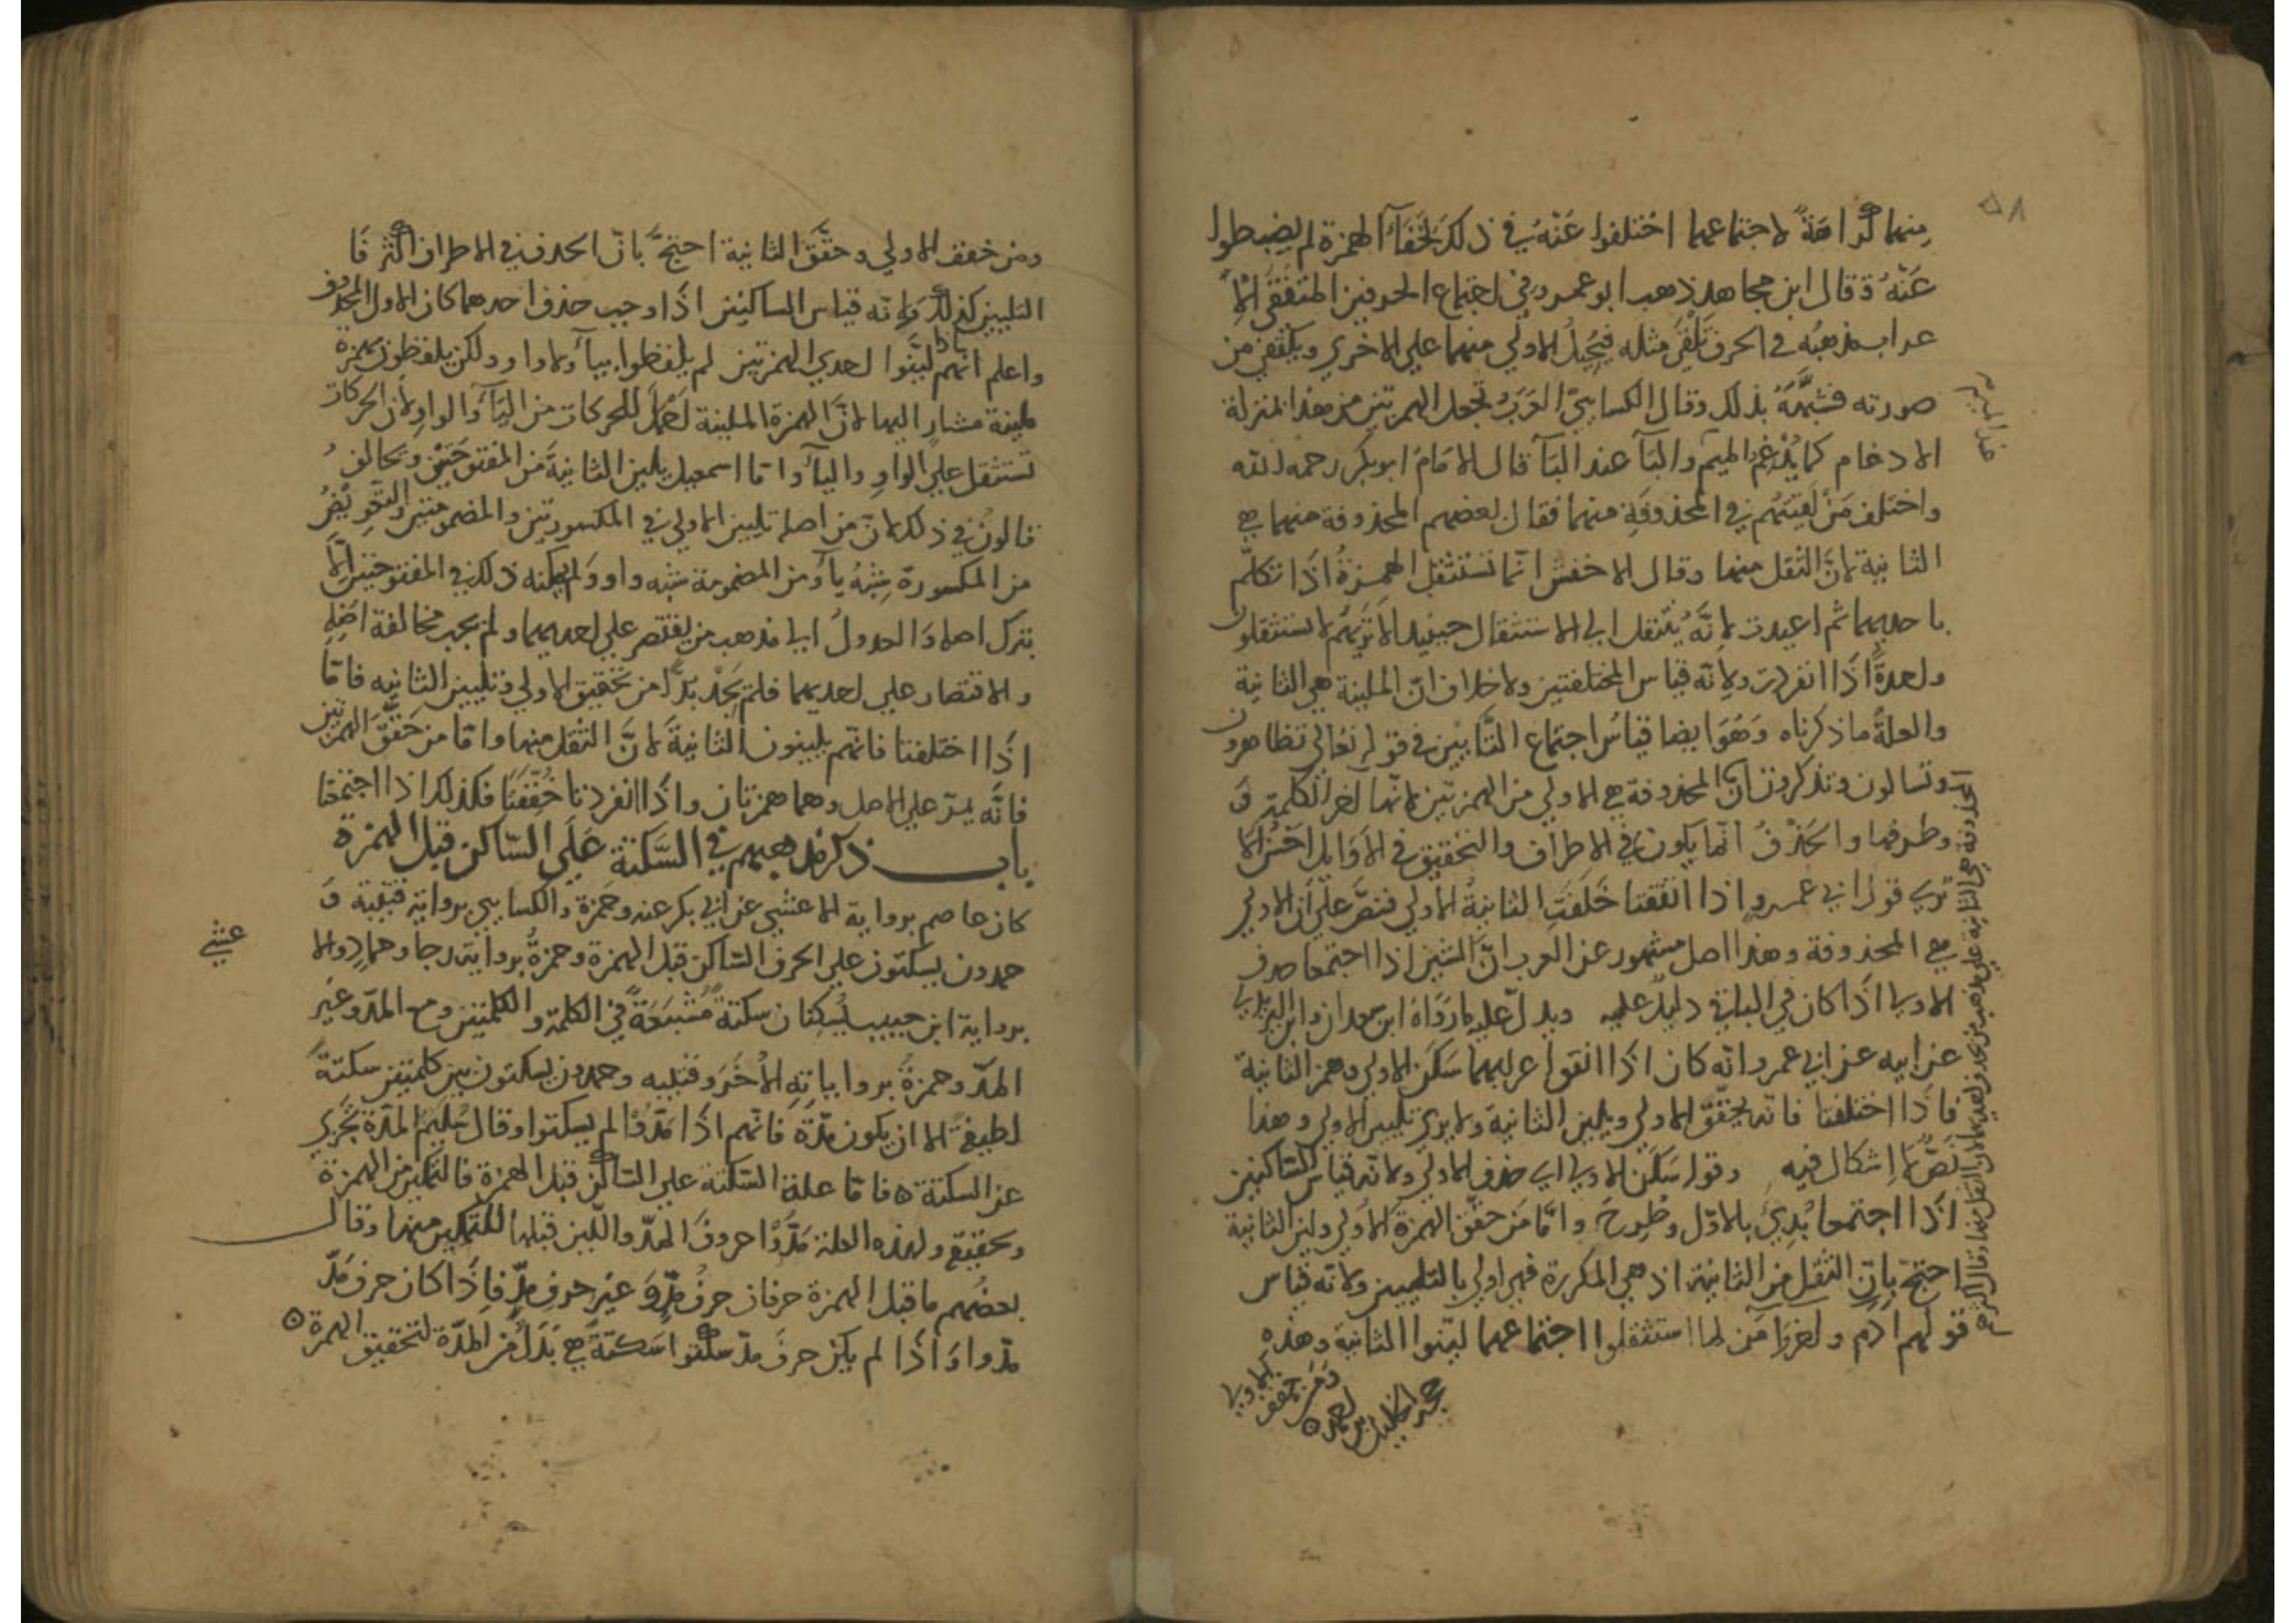 ٥٨
منهما كراهةً لاجتماعهما اختلفوا عَنْهُ في ذلك لخَفَاءِ الهمزة لم يضبطوا
عَنْهُ وقال ابن مجاهد ذهب ابو عمرو في اجتماع الحرفين المتفقَي الاِ
عراب مذهبُه في الحرف يَلْقَى مثله فيُحيلُ الاولى منهما على الاخرى ويكتفى من
صورته فشبَّهَهُ بذلك وقال الكسايي العَرَبُ تجعل الهمزتين من هذا بمنزلة
الادغام كما يُدْغِمُ الميم والبَا عند البَا قال الامَامُ ابو بكر رحمه الله
واختلف مَنْ لَقِيتُهُم في المحذوفَةِ منهما فقال بعضهم المحذوفة منهما هي
الثانية لانَّ الثقل منها وقال الاخفش انّما تستثقل الهمزةُ اذَا تكلّم
باحديهما ثم اعيدت لانَّه يُنْتقل الى الاستثقال حينيد الا تَرَيهُم لا يستثقلون
واحدةً اذَا انفردت ولانّه قياس المختلفتين ولا خلاف انّ الملينة هي الثانية
والعلةُ ما ذكرناه وَهُوَ ايضا قياسُ اجتماع التَّايين في قوله تعالى تظاهرون
وتسالون وتذكرون انّ المحذوفة هي الاولى من الهمزتين لانّها آخر الكلمة وَ
وطرفها والحَذْفُ انّما يكون في الاطراف والتحقيق في الاَوَايل احْسَنُ الا
ترى قول ابي عمرو اذا اتفقتا خَلَفَتِ الثانيةُ الاُولى فنصَّ على انّ الاولى
هي المحذوفة وهذا اصل مشهور عن العرب انّ الشين اذا اجتمعا حذف
الاولى اذَا كان في الباقي دليلٌ عليه ويدلّ عليه ما رَوَاهُ ابن سعدان وابن اليزيدي
عن ابيه عن ابي عمرو انّه كان اذَا اتفق اعرابهما سَكَّن الاولى وهمز الثانية
فاذَا اختلفتا فانه يحقّق الاولى ويلين الثانية ولا يرى تليين الاولى وهذا
نَصٌّ لا اِشكال فيه وقوله سَكّن الاولى اي حذف الاولى ولانّه قياس السّاكنين
اذَا اجتمعا بُدِئَ بالاوّل وطُرِحَ وامّا مَن حقّق الهمزة الاُولى ولين الثانية
احتجّ بانّ الثقل من الثانيَة اذ هي المكررة فهي اولى بالتليين ولانّه قياس
قولهم ادم واخر وامَن لما استثقلوا اجتماعهما ليّنوا الثانية وهذه
حجة الخليل بن احمد ٥
ومن خفف الاولى
المحذوفة هي الثانية على مذهب من يحذف احديهما لان الثقل منها وقال اكثرهم
ومن خفف الاولى وحقَّقَ الثانية احتجَّ بانّ الحذف في الاطراف اكثر فَا
التليين كذلك وَلانّه قياس الساكنين اذَا وجب حذف احدهما كان الاول المحذوف
واعلم انّهم اذا ليَّنوا احدي الهمزتين لم يلفظوا بياءٍ ولا واو ولكن يلفظون بهمزة
ملينة مشارٍ اليها لانَّ الهمزة الملينة اَحْمَلُ للحركات من اليَاءِ والواو لانّ الحركات
تستثقل على الواو والياءِ وامّا اسمعيل يلين الثانيةَ من المفتوحتين ويخالف
قالون في ذلك لانّ من اصله تليين الاولى في المكسورتين والمضمومتين والتعويضُ
من المكسورة شِبْهُ ياءٍ ومن المضمومة شبه واو ولم يمكنه ذلك في المفتوحتين اِلّا
بترك اصله وَالعدولُ الى مذهب من يقتصر على احديهما ولم يجب مخالفة اصْلِهِ
والاقتصار على احديهما فلم يَجِدْ بدّاً من تحقيق الاولى وتليين الثانيه فامّا
اذَا اختلفتا فانّهم يلينون الثانيةَ لانَّ الثقل منها وامّا من حَقَّقَ الهمزتين
فانَّه يمرّ على الاصل وهما همزتان واذَا انفردتا حُقِّقَتَا فكذلك اذا اجتمعتا
باب ذكر مذهبهم في السَّكتة عَلَى السّاكن قبل الهمزة
كان عاصم برواية الاعشى عن ابي بكر عنه وحَمزة والكسايي برواية قتيبة وَ
حمدون يسكتون على الحرف السّاكن قبل الهمزة وحمزةُ برواية رجا وحمادٍ والا
عشى
برواية ابن حبيب يَسكتان سكتةً مُشْبَعَةً في الكلمة والكلمتين ومع المدّ وغير
المدّ وحمزةُ برواياتِهِ الاُخَرِ وقتيبه وحمدون يسكتون بين كلمتين سكتةً
لطيفةً الا ان يكون مدّةً فانّهم اذَا مَدّوْا لم يسكتوا وقال سُليمٌ المدّة تجْزي
عن السكتة ٥ فامّا علة السّكتة على السّاكن قبل الهمزة فالتمكين من الهمزة
وتحقيقها ولهذه العلة مَدّوْا حروفَ المدّ واللّين قبلها للتمكين منها وقال
بعضُهم ما قبل الهمزة حرفان حرفُ مدٍّ وَغير حرفِ مدٍّ فاِذَا كان حرفَ مَدّ
مدّوا وَاذَا لم يكن حرفَ مدّ سكتوا سَكتةً هي بَدَلٌ من المدّة لتحقيق الهمزة ٥